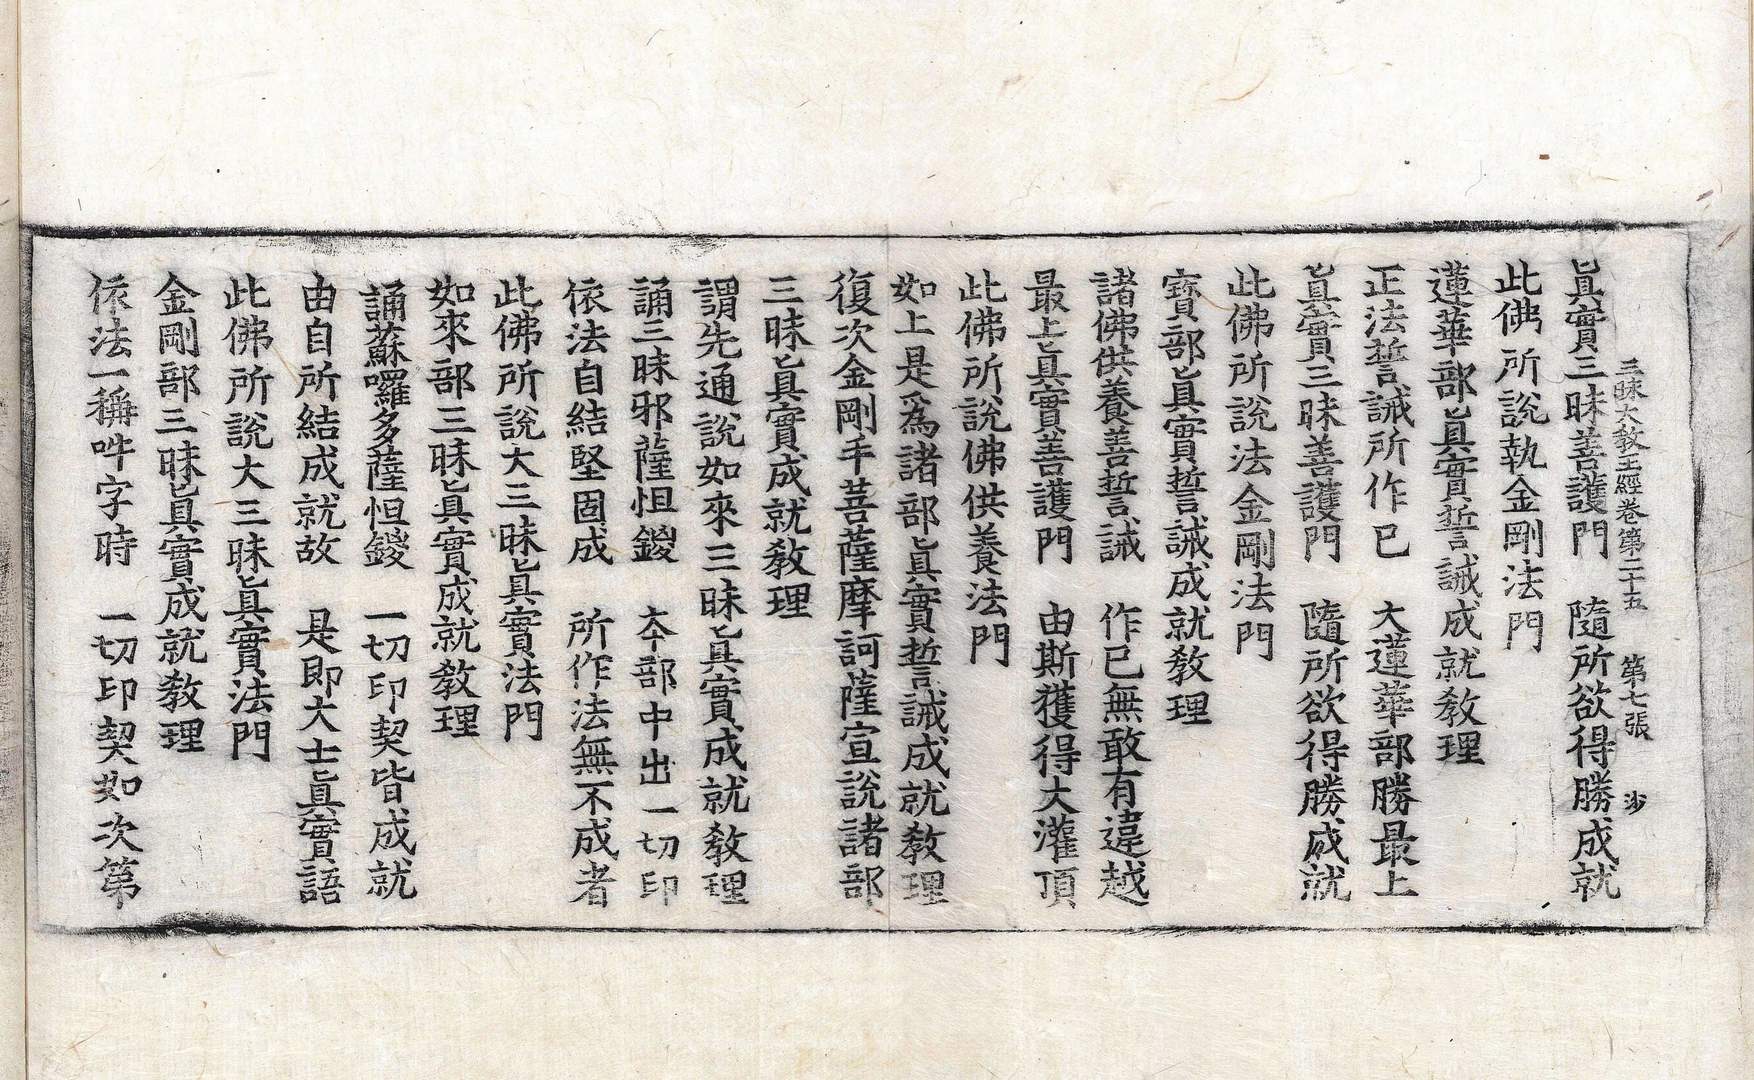 三昧大敎王經卷第二十五　第七張　沙
眞實三昧善護門　隨所欲得勝成就
此佛所說執金剛法門
蓮華部眞實誓誡成就敎理
正法誓誡所作已　大蓮華部勝最上
眞實三昧善護門　隨所欲得勝成就
此佛所說法金剛法門
寶部眞實誓誡成就敎理
諸佛供養善誓誡　作已無敢有違越
最上眞實善護門　由斯獲得大灌頂
此佛所說佛供養法門
如上是爲諸部眞實誓誡成就敎理
復次金剛手菩薩摩訶薩宣說諸部
三昧眞實成就敎理
謂先通說如來三昧眞實成就敎理
誦三昧邪薩怛鑁　夲部中出一切印
依法自結堅固成　所作法無不成者
此佛所說大三昧眞實法門
如來部三昧眞實成就敎理
誦蘇囉多薩怛鑁　一切印契皆成就
由自所結成就故　是即大士眞實語
此佛所說大三昧眞實法門
金剛部三昧眞實成就敎理
依法一稱吽字時　一切印契如次第